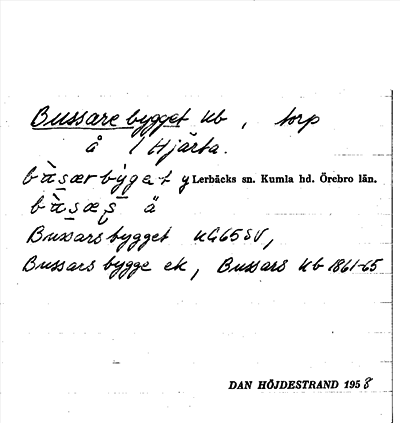 Bussarebygget kb, torp
å 1 Hjärta.
y Lerbäcks sn. Kumla hd. Örebro län.
ä
Bussarsbygget KG65SV,
Bussars bygge ek, Bussars kb 1861-65
DAN HÖJDESTRAND 1958